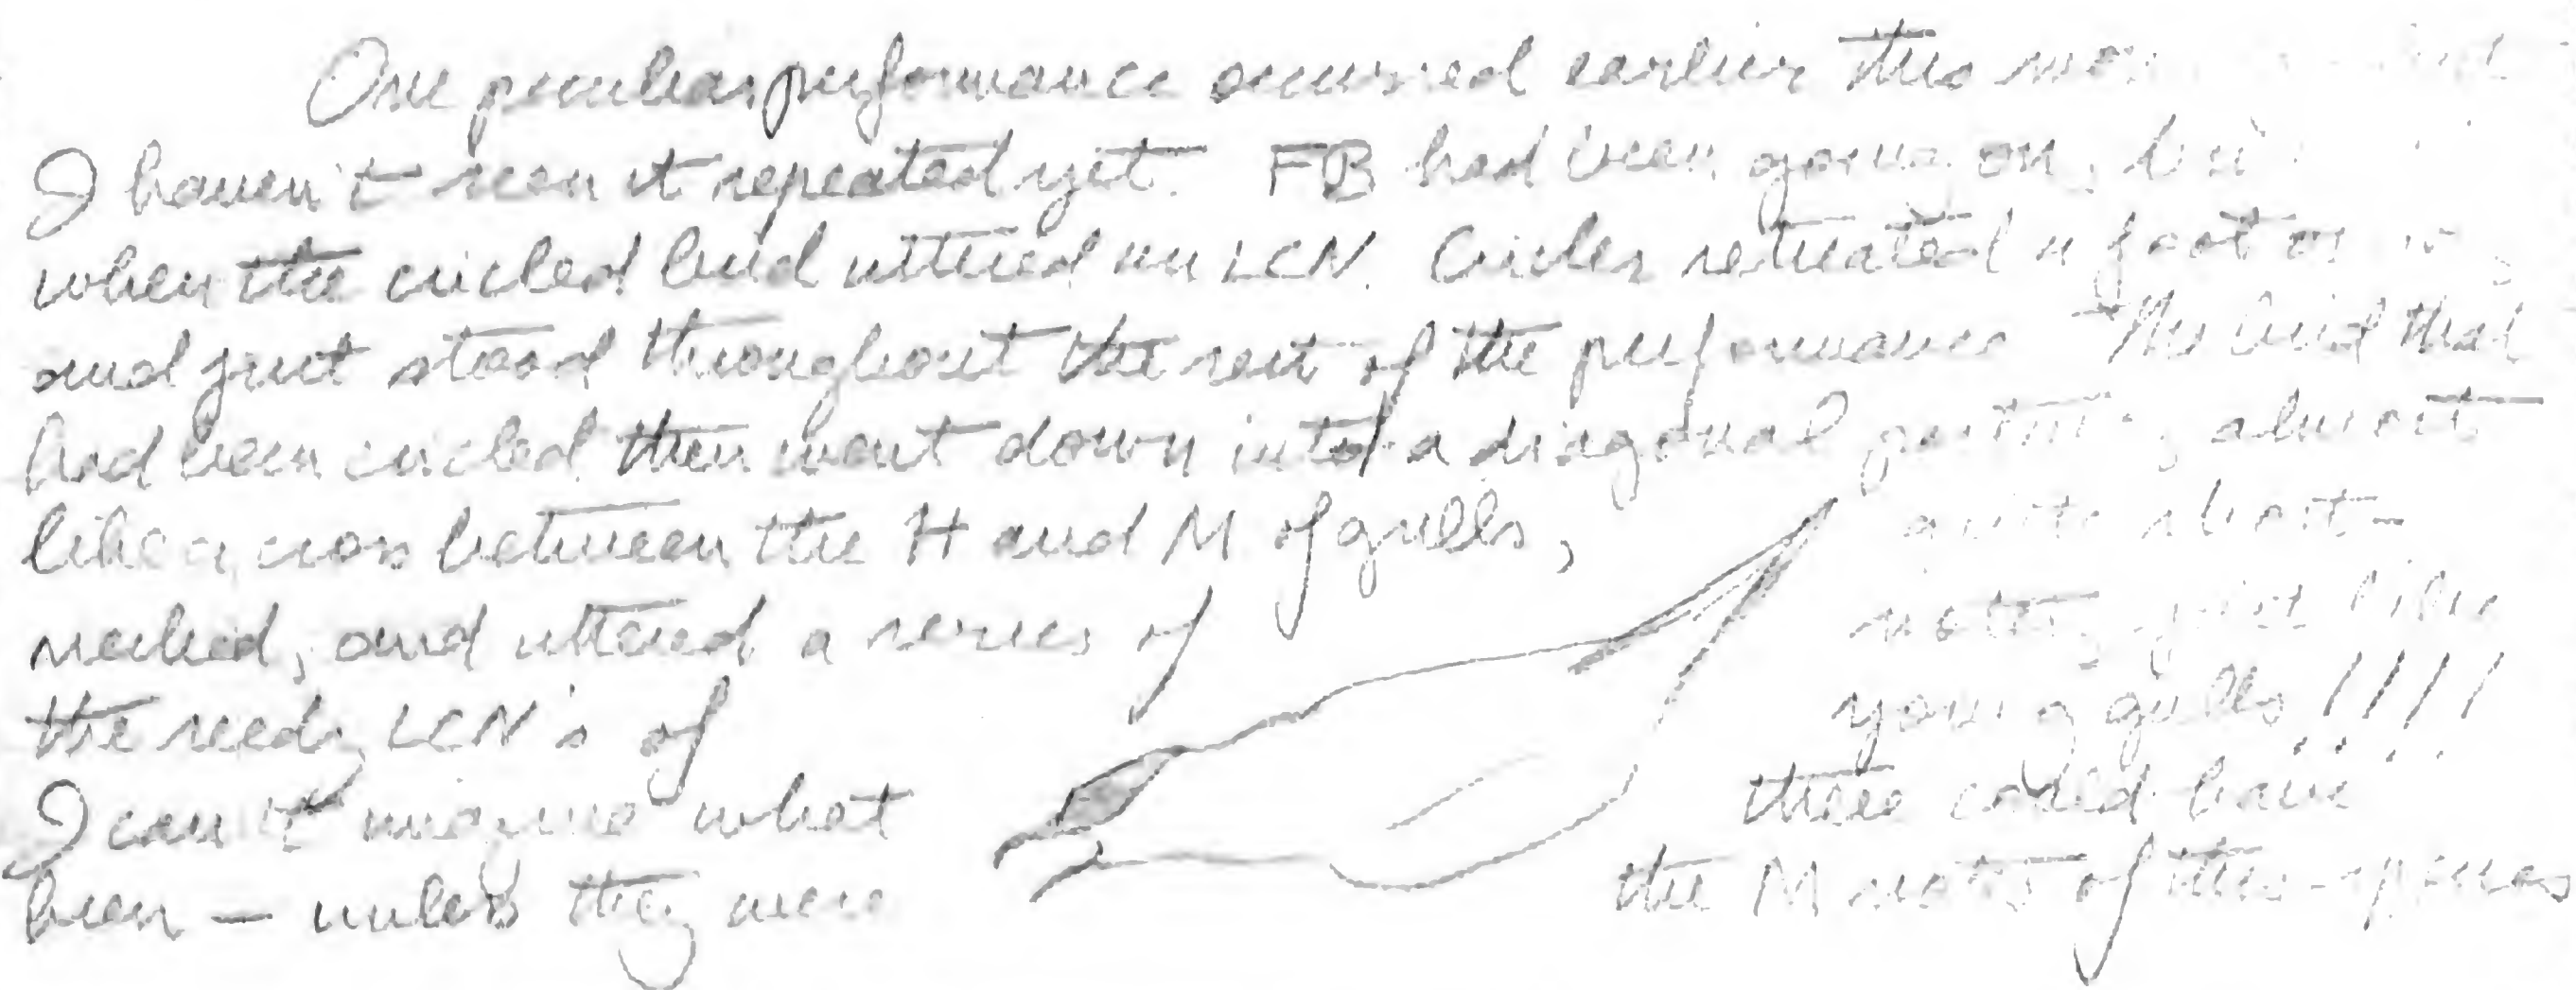 One peculiar performance occurred earlier this
I haven't seen it repeated yet. FB had been going on,
when the circled bird uttered an LCN. Circler retreated a foot or
and just stood throughout the rest of the performance The bird that
had been circled then went down into a diagonal posture, almost
like a cross between the H and M of gulls, quite short-
necked, and uttered a series of notes, just like
the reedy LCN's of young gulls!!!!
I can't imagine what these could have
been — unless they were the M notes of this species